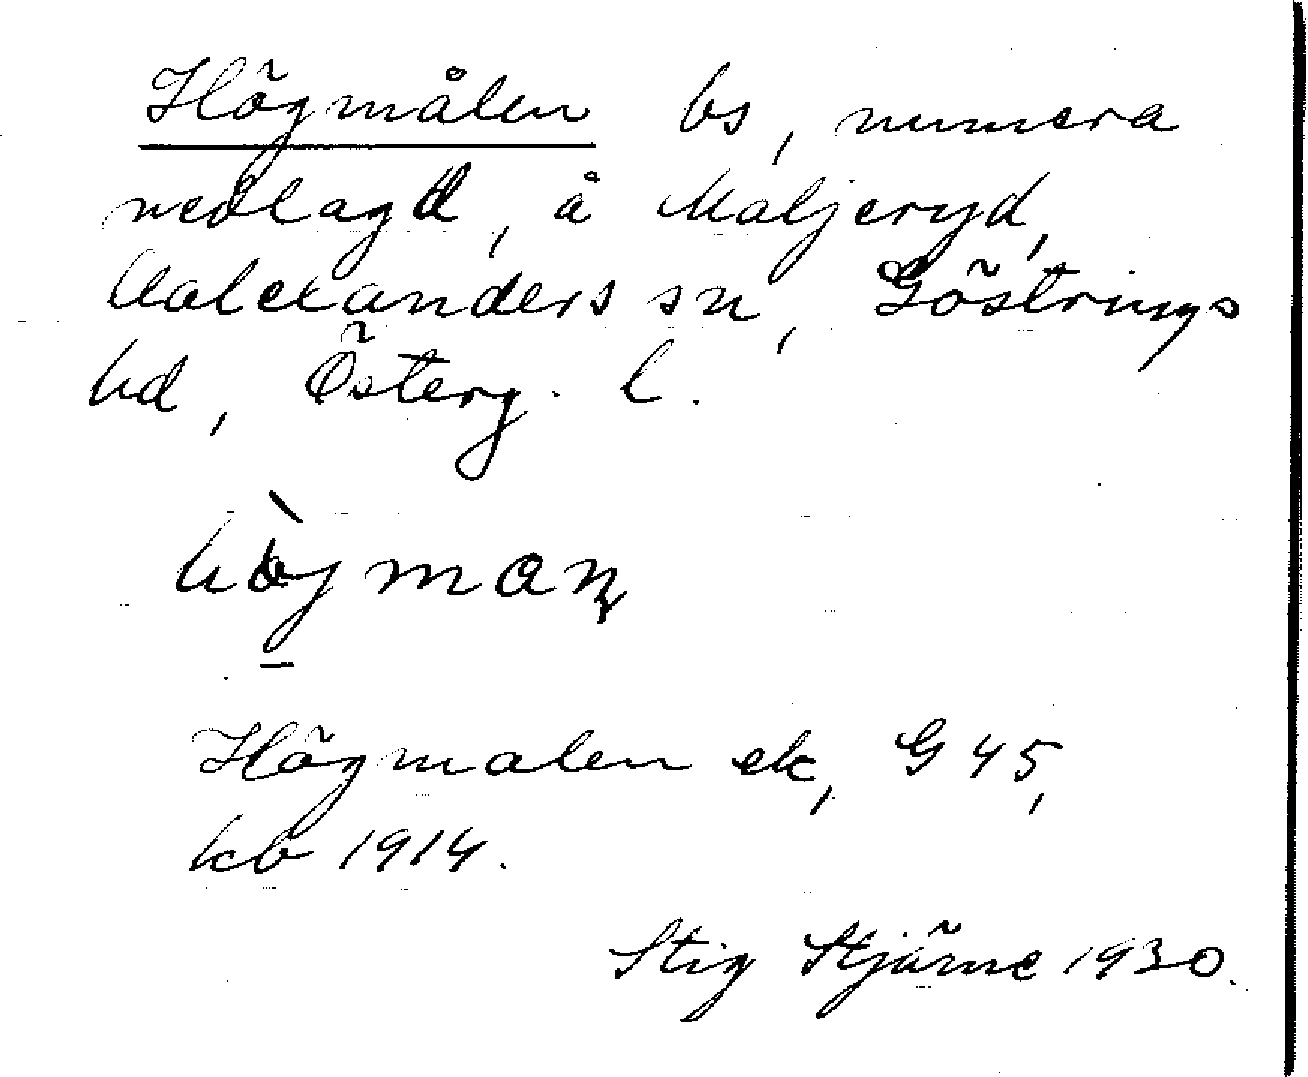 Högmålen bs, numera
nedlagd, å Maljeryd,
Valderanders sn, Göstrings
hd, Österg. l.
högman
Högmalen ek, G 45,
kb 1914.
Stig Stjärne 1930.